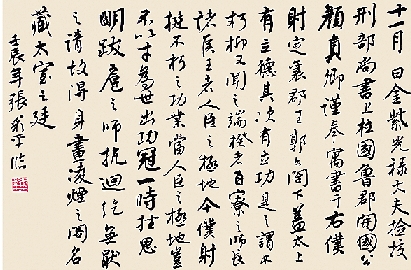 十一月日金紫光祿大夫檢校
刑部尚書上柱國魯郡開國公
顏真卿謹奉寓書于右僕
射定襄郡王郭公閣下蓋太上
有立德其次有立功是之謂不
朽抑又聞之端揆者百寮之師長
諸侯王者人臣之極地今僕射
挺不朽之功業當人臣之極地豈
不以才為世出功冠一時挫思
明跋扈之師抗迴紇無厭
之請故得身畫凌煙之閣名
藏太室之廷
壬辰年張臨